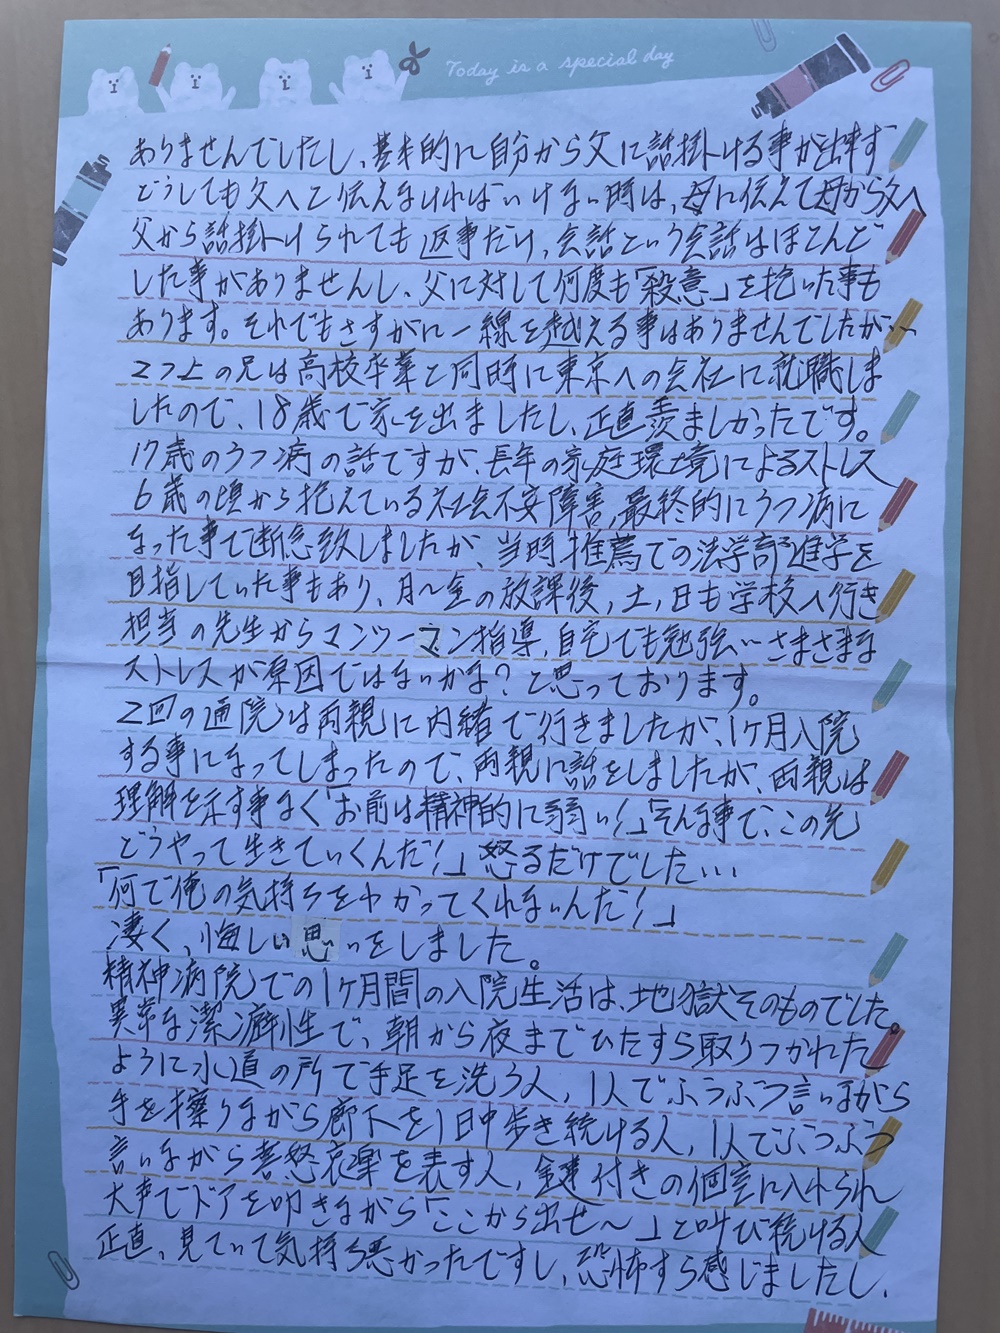 Today is a special day
ありませんでしたし、基本的に自分から父に話掛ける事が出来ず
どうしても父へと伝えなければいけない時は、母に伝えて母から父へ
父から話掛けられても返事だけ、会話という会話はほとんど
した事がありませんし、父に対して何度も「殺意」を抱いた事も
あります。それでもさすがに一線を越える事はありませんでしたが…
2つ上の兄は高校卒業と同時に東京への会社に就職しま
したので、18歳で家を出ましたし、正直羨ましかったです。
17歳のうつ病の話ですが、長年の家庭環境によるストレス
6歳の頃から抱えている社会不安障害、最終的にうつ病に
なった事で断念致しましたが、当時推薦での法学部進学を
目指していた事もあり、月〜金の放課後、土、日も学校へ行き
担当の先生からマンツーマン指導、自宅でも勉強…さまざまな
ストレスが原因ではないかな?と思っております。
2回の通院は両親に内緒で行きましたが、1ヶ月入院
する事になってしまったので、両親に話をしましたが、両親は
理解を示す事なく「お前は精神的に弱い!」「そんな事で、この先
どうやって生きていくんだ!」怒るだけでした…
「何で俺の気持ちをわかってくれないんだ!」
凄く、悔しい思いをしました。
精神病院での1ヶ月間の入院生活は、地獄そのものでした。
異常な潔癖性で、朝から夜までひたすら取りつかれた
ように水道の所で手足を洗う人、1人でぶつぶつ言いながら
手を擦りながら廊下を1日中歩き続ける人、1人でぶつぶつ
言いながら喜怒哀楽を表す人、鍵付きの個室に入れられ
大声でドアを叩きながら「ここから出せ〜」と叫び続ける人
正直、見ていて気持ち悪かったですし、恐怖すら感じましたし、